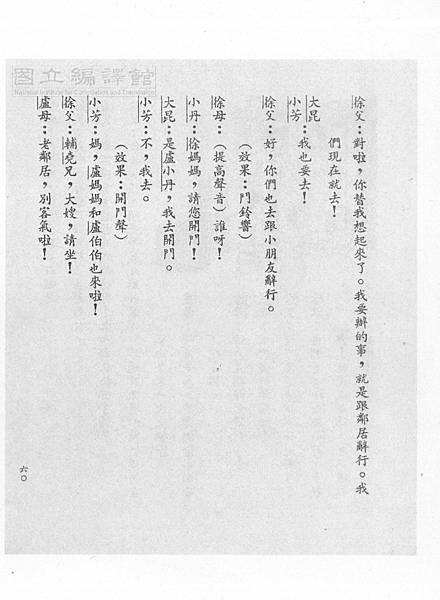 國立編譯館
National Institute for Compilation and Translation
徐父：對啦，你替我想起來了。我要辦的事，就是跟鄰居辭行。我
們現在就去！
大昆
小芳：我也要去！
徐父：好，你們也去跟小朋友辭行。
（效果：門鈴響）
徐母：（提高聲音）誰呀！
小丹：徐媽媽，請您開門！
大昆：是盧小丹，我去開門。
小芳：不，我去。
（效果：開門聲）
小芳：媽，盧媽媽和盧伯伯也來啦！
徐父：輔堯兄，大嫂，請坐！
盧母：老鄰居，別客氣啦！
六〇